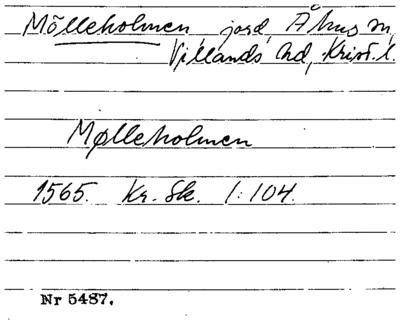 Mölleholmen jord, Åhus sn,
Villands hd, Krist. l.
Mølleholmen
1565. Kr. Sk. 1:104.
Nr 5487.